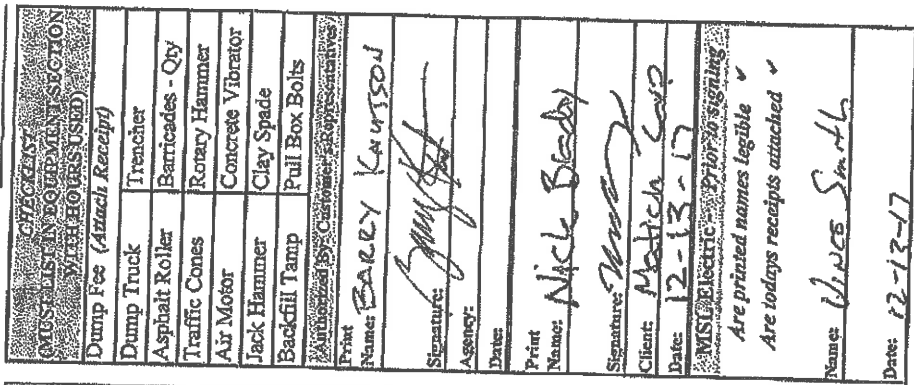 CHECKLIST
(MUST LIST IN EQUIPMENT SECTION
WITH HOURS USED)
Dump Fee (Attach Receipt)
Dump Truck Trencher
Asphalt Roller Barricades - Qty
Traffic Cones Rotary Hammer
Air Motor Concrete Vibrator
Jack Hammer Clay Spade
Backfill Tamp Pull Box Bolts
Authorized By: Customer's Representatives
Print
Name: BARRY
Signature:
Agency:
Date:
Print
Name: Nick Brady
Signature:
Client: Matich
Date: 12-13-17
MSL Electric - Prior to signing
Are printed names legible ✓
Are todays receipts attached ✓
Name: Vince Smith
Date: 12-13-17